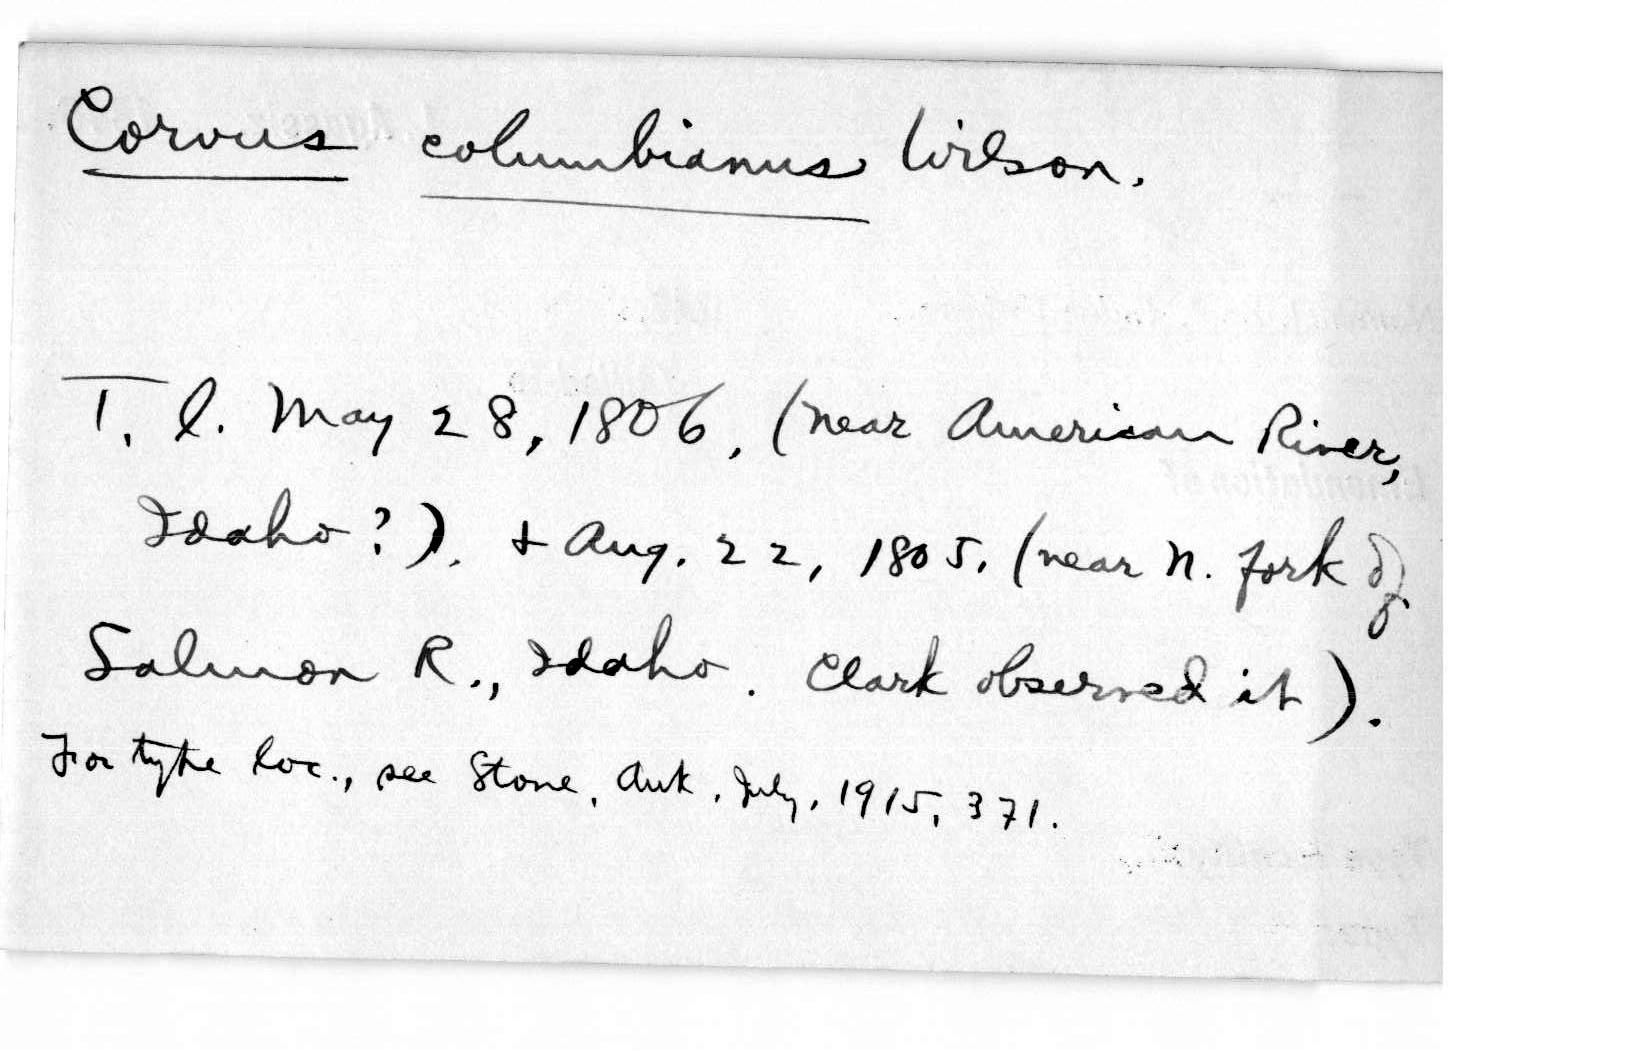 Corvus columbianus Wilson.
T. l. May 28, 1806, (near American River,
Idaho?). + Aug. 22, 1805. (near N. fork of
Salmon R., Idaho. Clark observed it).
For type loc., see Stone, Auk, July, 1915, 371.